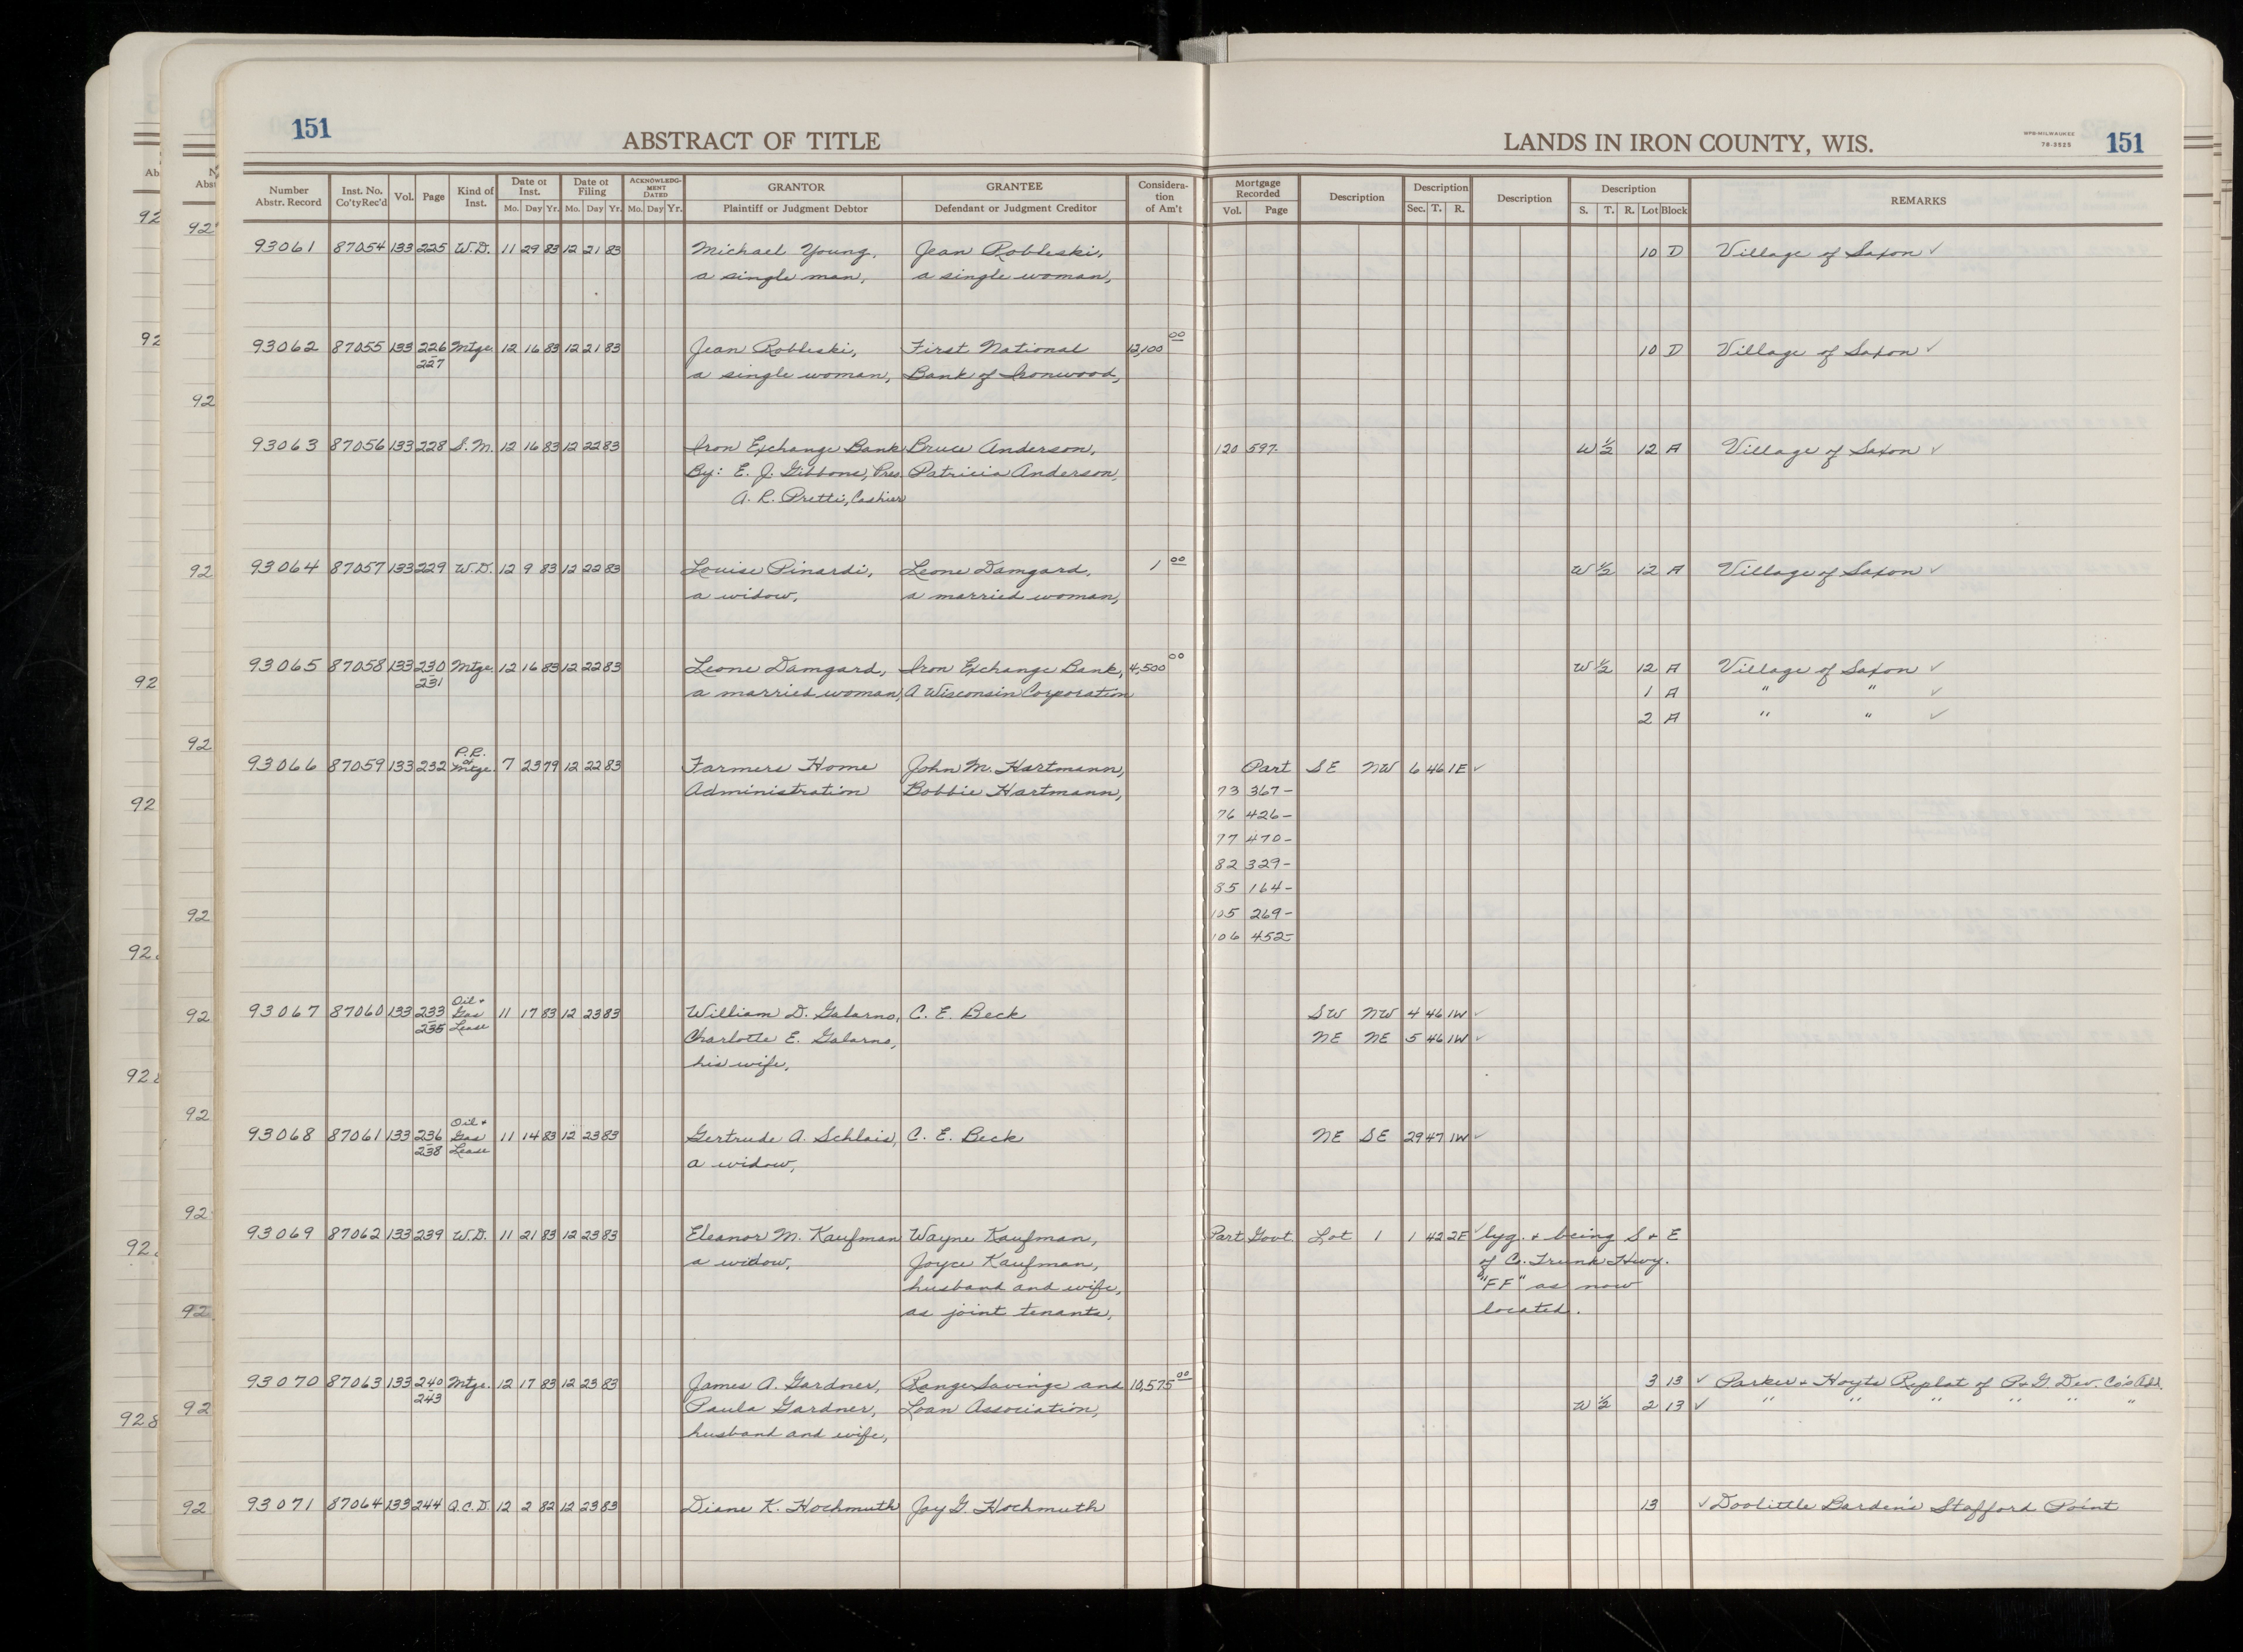 151
ABSTRACT OF TITLE
LANDS IN IRON COUNTY, WIS.
WPB-MILWAUKEE
78-3525
151
Number Abstr. Record | Inst. No. Co'ty Rec'd | Vol. | Page | Kind of Inst. | Date of Inst. Mo. Day Yr. | Date of Filing Mo. Day Yr. | ACKNOWLEDGMENT DATED Mo. Day Yr. | GRANTOR Plaintiff or Judgment Debtor | GRANTEE Defendant or Judgment Creditor | Consideration of Am't | Mortgage Recorded Vol. Page | Description | Description Sec. T. R. | Description | Description S. T. R. Lot Block | REMARKS
93061 87054 133 225 W.D. 11 29 83 12 21 83 Michael Young, Jean Robleski, 10 D Village of Saxon ✓
a single man, a single woman,
93062 87055 133 226 Mtge. 12 16 83 12 21 83 Jean Robleski, First National 12,100 00 10 D Village of Saxon ✓
227 a single woman, Bank of Ironwood,
93063 87056 133 228 S.M. 12 16 83 12 22 83 Iron Exchange Bank Bruce Anderson, 120 597 W 1/2 12 A Village of Saxon ✓
By: E. J. Gibbons, Pres. Patricia Anderson,
A. R. Pretti, Cashier
93064 87057 133 229 W.D. 12 9 83 12 22 83 Louise Pinardi, Leone Damgard, 1 00 W 1/2 12 A Village of Saxon ✓
a widow, a married woman,
93065 87058 133 230 Mtge. 12 16 83 12 22 83 Leone Damgard, Iron Exchange Bank, 4,500 00 W 1/2 12 A Village of Saxon ✓
231 a married woman, A Wisconsin Corporation 1 A " " ✓
2 A " " ✓
P.R. of
93066 87059 133 232 Mtge. 7 23 79 12 22 83 Farmers Home John M. Hartmann, Part SE NW 6 46 1E ✓
Administration Bobbie Hartmann, 73 367-
76 426-
77 470-
82 329-
85 164-
105 269-
106 452-
Oil +
93067 87060 133 233 Gas 11 17 83 12 23 83 William D. Galarno, C. E. Beck SW NW 4 46 1W ✓
235 Lease Charlotte E. Galarno, NE NE 5 46 1W ✓
his wife,
Oil +
93068 87061 133 236 Gas 11 14 83 12 23 83 Gertrude A. Schlais, C. E. Beck NE SE 29 47 1W ✓
238 Lease a widow,
93069 87062 133 239 W.D. 11 21 83 12 23 83 Eleanor M. Kaufman Wayne Kaufman, Part Govt. Lot 1 1 42 2E ✓ lyg. + being S + E
a widow, Joyce Kaufman, of Co. Trunk Hwy.
husband and wife, "FF" as now
as joint tenants, located.
93070 87063 133 240 Mtge. 12 17 83 12 23 83 James A. Gardner, Range Savings and 10,575 00 3 13 ✓ Parker + Hoyts Replat of P+G. Dev. Co's Add.
243 Paula Gardner, Loan Association, W 1/2 2 13 ✓ " " " " " "
husband and wife,
93071 87064 133 244 Q.C.D. 12 2 82 12 23 83 Diane K. Hochmuth Jay G. Hochmuth 13 ✓ Doolittle Barden's Stafford Point